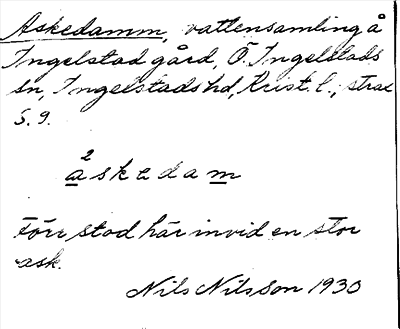 Askedamm, vattensamling å
Ingelstad gård, Ö. Ingelstads
sn, Ingelstads hd, Krist. l., strax
S. g.
²askedam
Förr stod här invid en stor
ask.
Nils Nilsson 1930